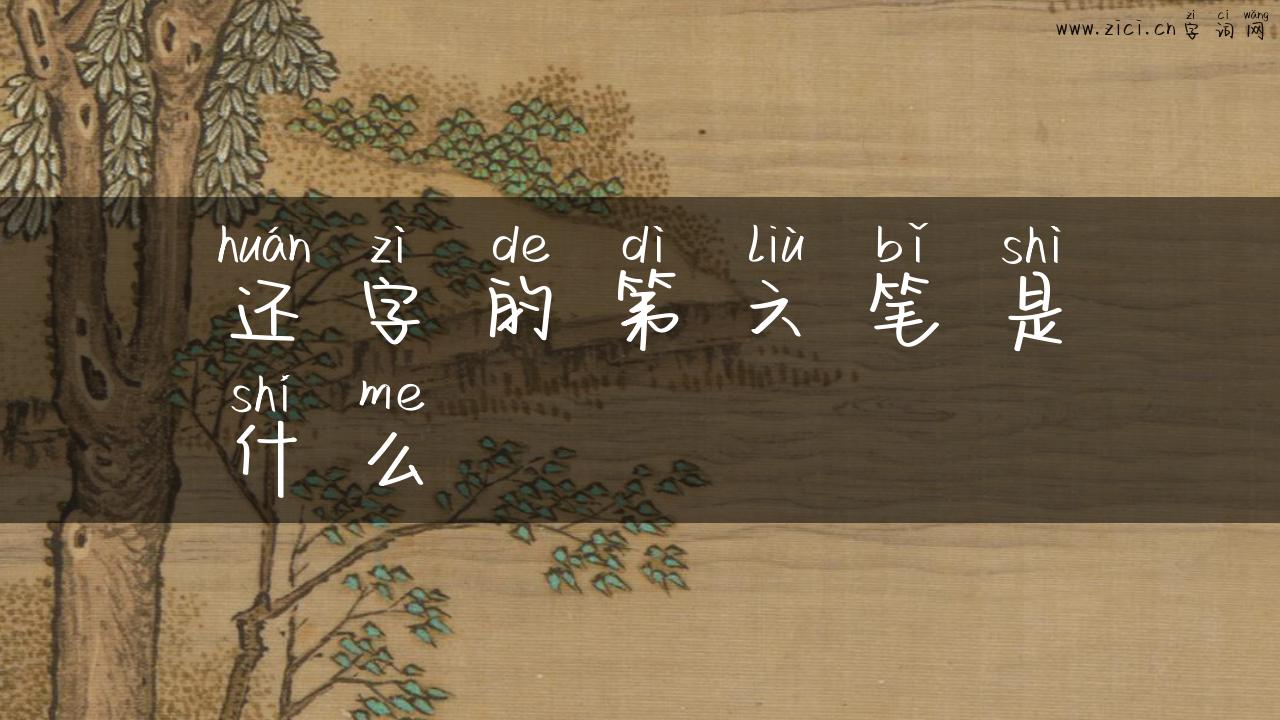 zì cí wǎng
www.zici.cn 字词网
huán zì de dì liù bǐ shì
还字的第六笔是
shí me
什么